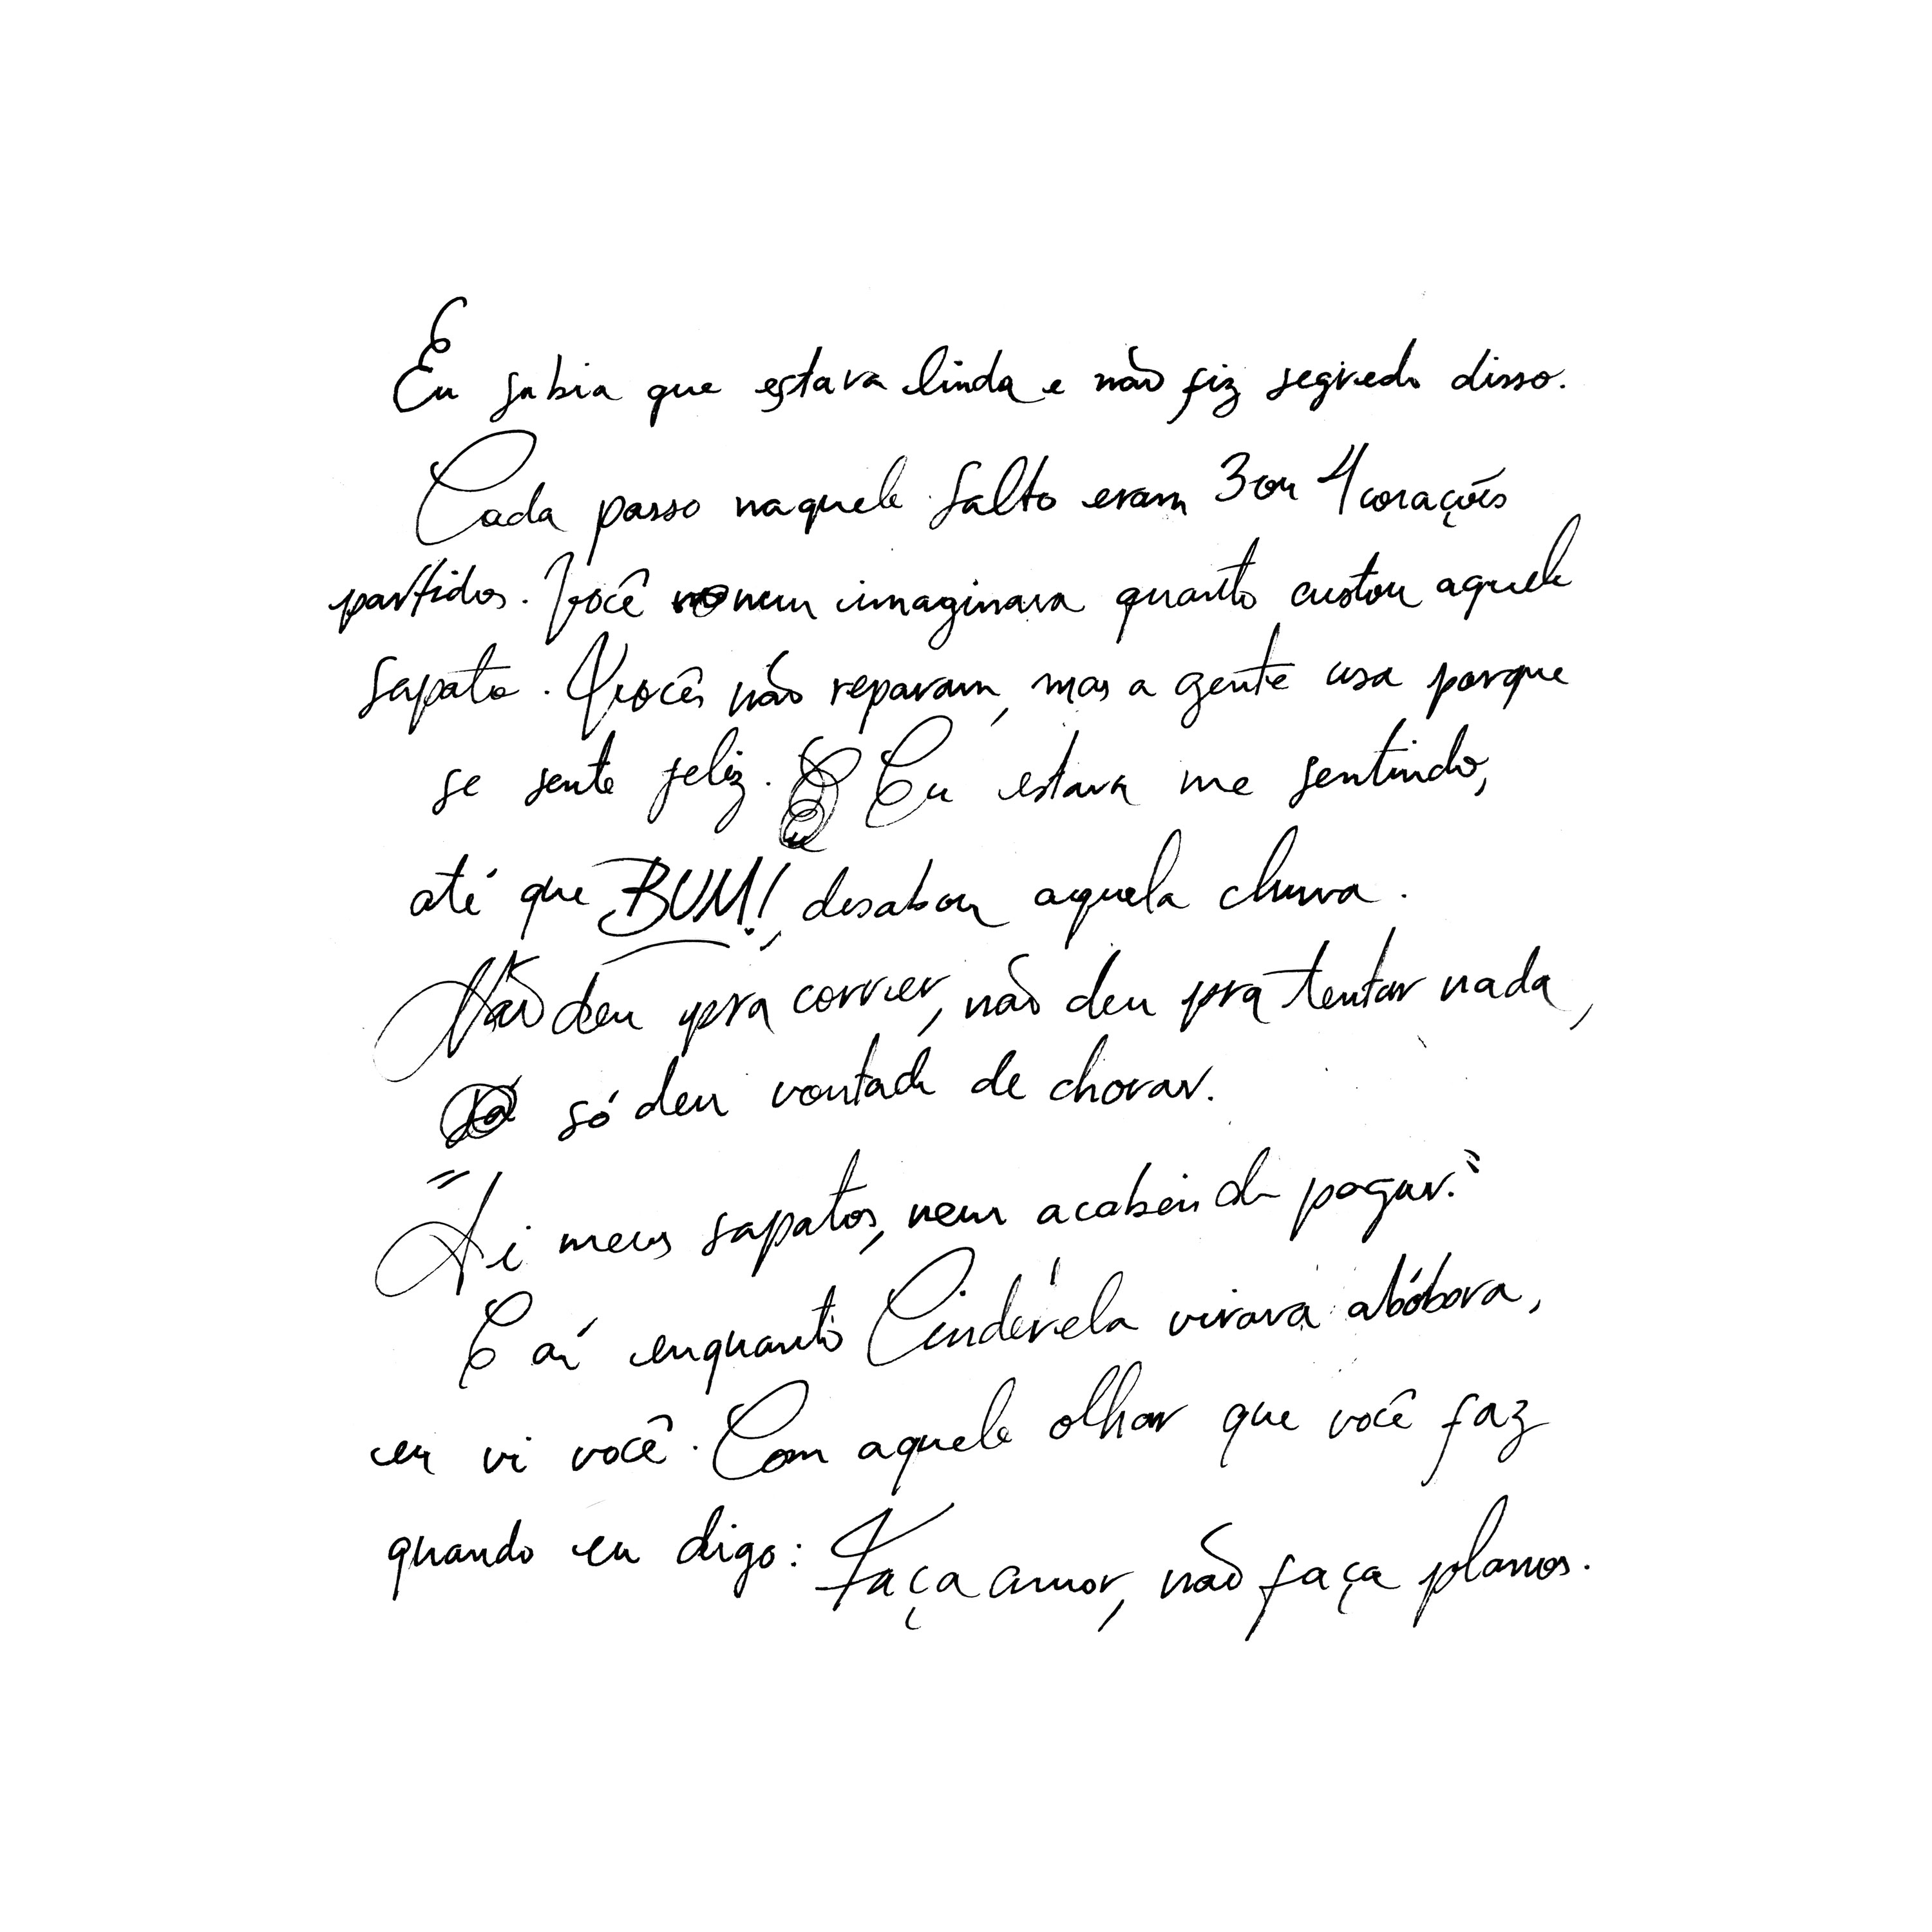 Eu sabia que estava linda e não fiz segredo disso.
Cada passo naquele salto eram 3 ou 4 corações
partidos. Você nem imaginava quanto custou aquele
sapato. Vocês não reparam, mas a gente usa porque
se sente feliz. Eu estava me sentindo,
até que BUM!, desabou aquela chuva.
Não deu pra correr, não deu pra tentar nada,
só deu vontade de chorar.
"Ai meus sapatos, nem acabei de pagar."
E aí enquanto Cinderela virava abóbora,
eu vi você. Com aquele olhar que você faz
quando eu digo: Faça amor, não faça planos.